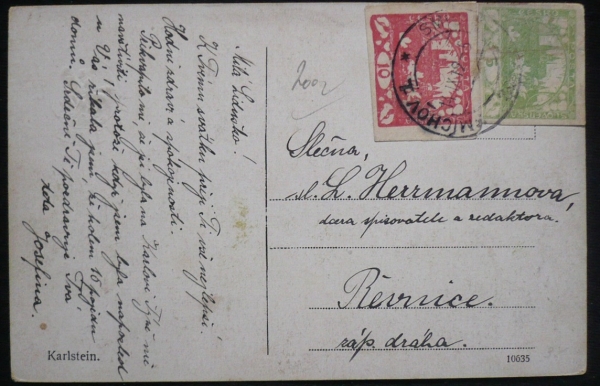 Milá Lidunko!
K Tvému svátku přeji Ti vše nejlepší!
Hodně zdraví a spokojenosti.
mi, že jsi byla na Karlově Týně
navštívit když jsem byla naposled
u Vás říkala jsem že kolem 15
domů. Srdečně Tě pozdravuje Tvá
teta Josefína.
Karlstein.
200,
SMÍCHOV 1
Slečna,
sl. L. Herrmannova,
dcera spisovatele a redaktora.
Řevnice.
záp. dráha.
10035